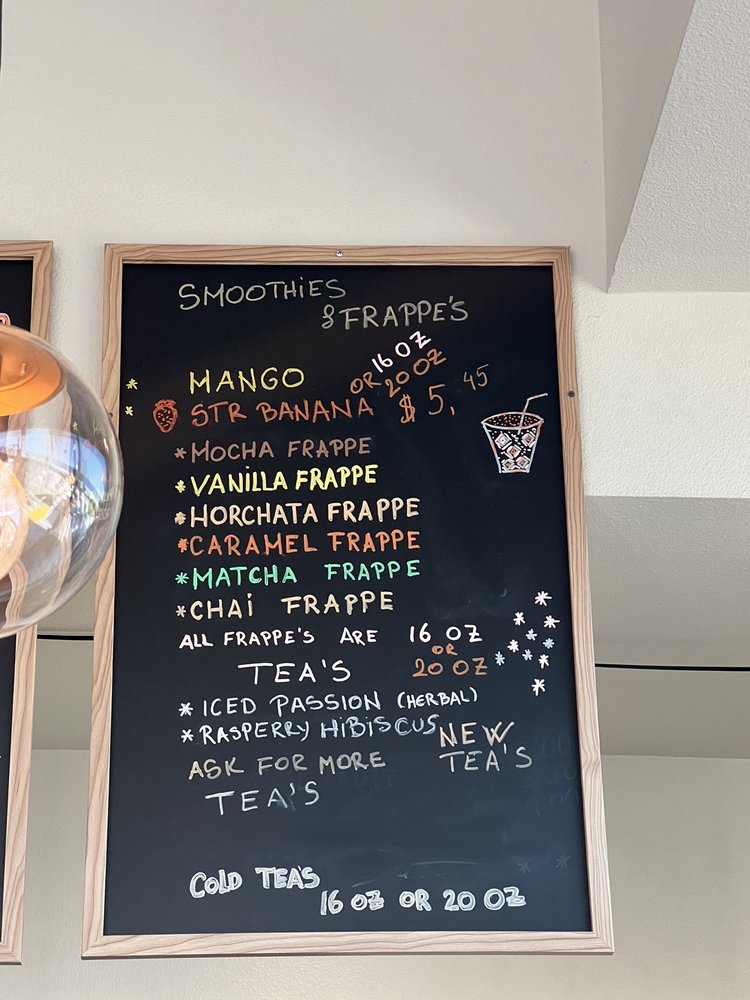 SMOOTHiES
& FRAPPE'S
16 OZ
OR 20 OZ
* MANGO
* STR BANANA $5,45
* MOCHA FRAPPE
* VANILLA FRAPPE
* HORCHATA FRAPPE
* CARAMEL FRAPPE
* MATCHA FRAPPE
* CHAi FRAPPE
ALL FRAPPE'S ARE 16 OZ
OR
20 OZ
TEA'S
* ICED PASSION (HERBAL)
* RASPERRY HiBiSCUS
NEW
TEA'S
ASK FOR MORE
TEA'S
COLD TEA'S
16 OZ OR 20 OZ